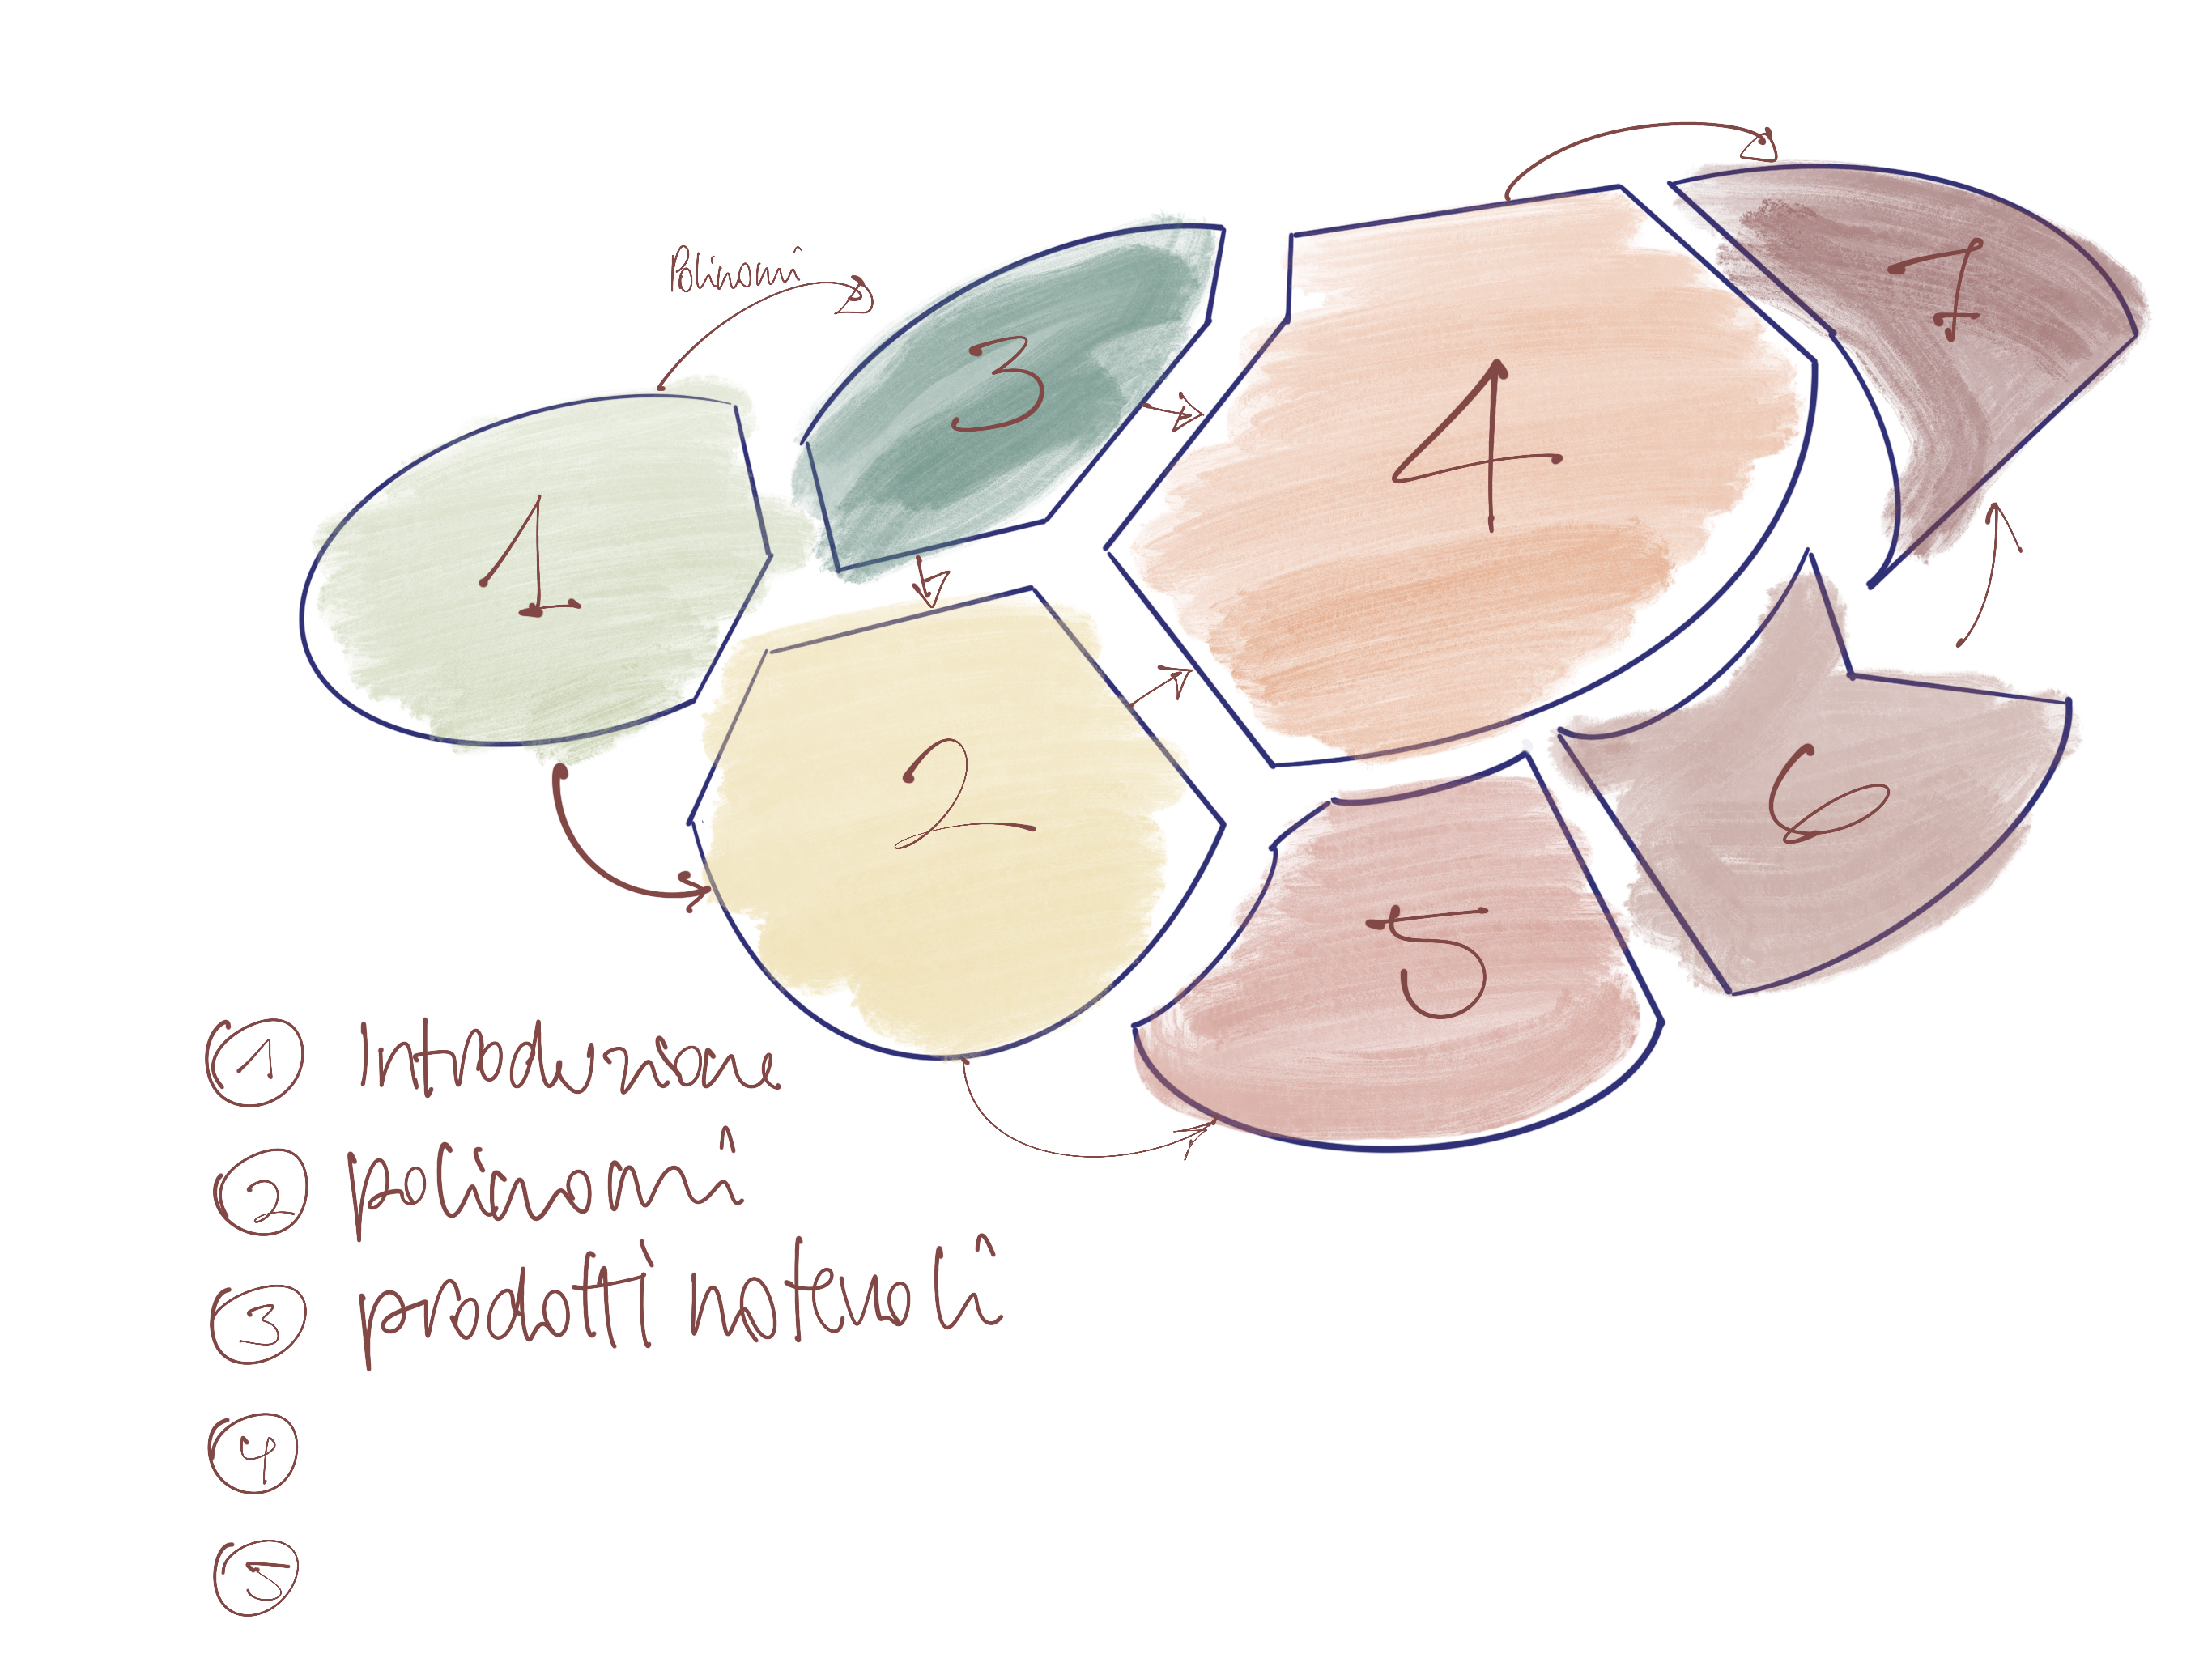 Polinomi
1
3
4
7
2
5
6
1 Introduzione
2 polinomi
3 prodotti notevoli
4
5